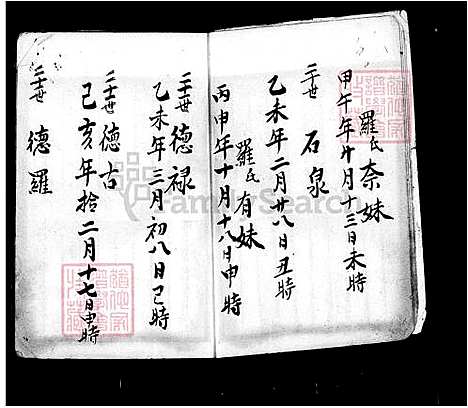 羅氏奈妹
甲午年廿月十三日未時
二十世 石泉
乙未年二月廿八日丑時
羅氏有妹
丙申年十月十八日申時
二十世 德禄
乙未年三月初八日己時
二十世 德古
己亥年拾二月十七日申時
二十世 德羅
FamilySearch